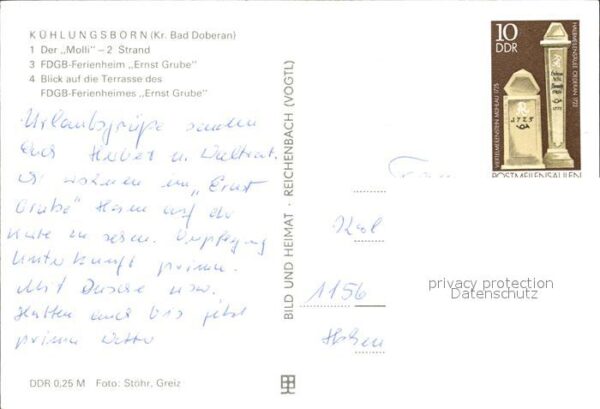 KÜHLUNGSBORN (Kr. Bad Doberan)
1 Der „Molli" – 2 Strand
3 FDGB-Ferienheim „Ernst Grube"
4 Blick auf die Terrasse des
FDGB-Ferienheimes „Ernst Grube"
Urlaubsgrüße senden
Euch Hubert u. Waltraut.
Wir wohnen im „Ernst
Grube" Heim auf der
Karte zu sehen. Verpflegung
Unterkunft prima.
Mit Dusche usw.
Hatten auch bis jetzt
prima Wetter
DDR 0,25 M Foto: Stöhr, Greiz
BILD UND HEIMAT · REICHENBACH (VOGTL)
10
DDR
VIERTELMEILENSTEIN MÜHLAU 1725
HALBMEILENSÄULE OEDERAN 1722
POSTMEILENSÄULEN
1156
privacy protection
Datenschutz